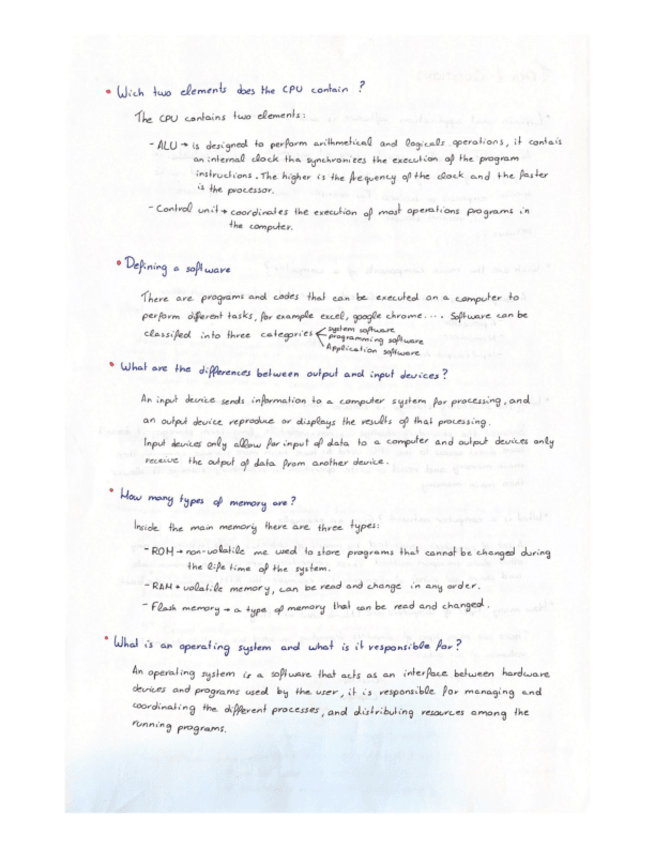 • Wich two elements does the CPU contain ?
The CPU contains two elements:
- ALU → is designed to perform arithmetical and logicals operations, it contais
an internal clock tha synchronizes the execution of the program
instructions. The higher is the frequency of the clock and the faster
is the processor.
- Control unit → coordinates the execution of most operations programs in
the computer.
• Defining a software
There are programs and codes that can be executed on a computer to
perform diferent tasks, for example excel, google chrome.... Software can be
classified into three categories system software
programming software
Application software
• What are the differences between output and input devices?
An input device sends information to a computer system for processing, and
an output device reproduce or displays the results of that processing.
Input devices only allow for input of data to a computer and output devices only
receive the output of data from another device.
• How many types of memory are?
Inside the main memory there are three types:
- ROM → non-volatile me used to store programs that cannot be changed during
the life time of the system.
- RAM → volatile memory, can be read and change in any order.
- Flash memory → a type of memory that can be read and changed.
• What is an operating system and what is it responsible for?
An operating system is a software that acts as an interface between hardware
devices and programs used by the user, it is responsible for managing and
coordinating the different processes, and distributing resources among the
running programs.